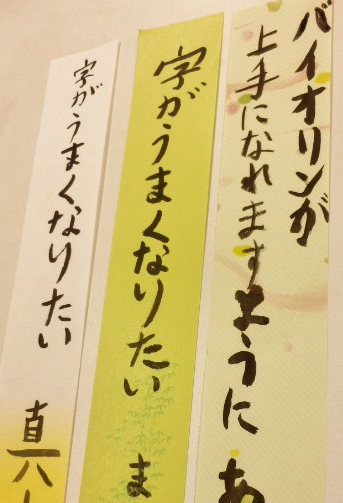 バイオリンが
上手になれますように あ
字がうまくなりたい ま
字がうまくなりたい 真